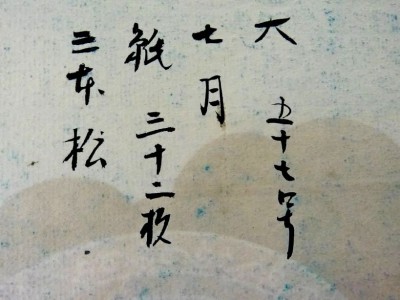 大 五十七号
七月
紙 三十二枚
三本松